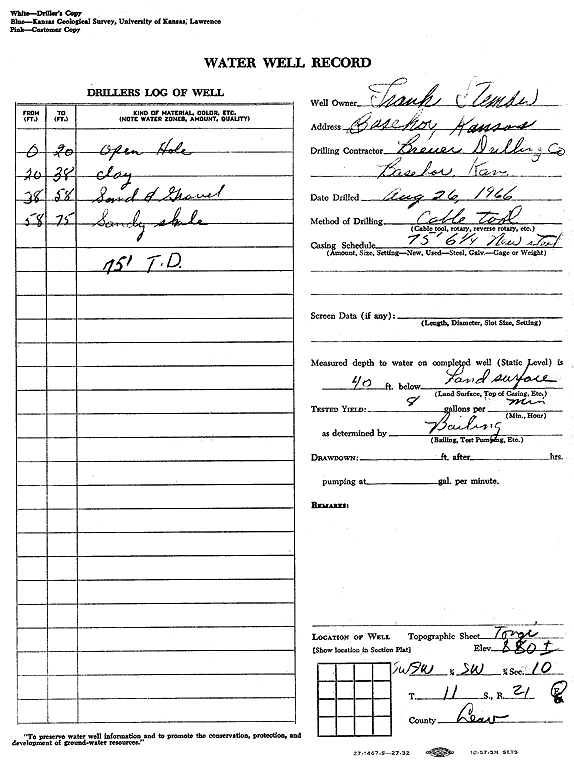 White—Driller's Copy
Blue—Kansas Geological Survey, University of Kansas, Lawrence
Pink—Customer Copy
WATER WELL RECORD
DRILLERS LOG OF WELL
FROM (FT.) TO (FT.) KIND OF MATERIAL, COLOR, ETC. (NOTE WATER ZONES, AMOUNT, QUALITY)
0 20 Open Hole
20 38 clay
38 58 Sand & Gravel
58 75 Sandy shale
75' T.D.
"To preserve water well information and to promote the conservation, protection, and
development of ground-water resources."
Well Owner Frank
Address Basehor, Kansas
Drilling Contractor Brewer Drilling Co
Basehor, Kan.
Date Drilled Aug 26, 1966
Method of Drilling Cable tool
(Cable tool, rotary, reverse rotary, etc.)
Casing Schedule 75' 6 1/4 New steel
(Amount, Size, Setting—New, Used—Steel, Galv.—Gage or Weight)
Screen Data (if any):
(Length, Diameter, Slot Size, Setting)
Measured depth to water on completed well (Static Level) is
40 ft. below Land surface
(Land Surface, Top of Casing, Etc.)
TESTED YIELD: 8 gallons per min
(Min., Hour)
as determined by Bailing
(Bailing, Test Pumping, Etc.)
DRAWDOWN: ft. after hrs.
pumping at gal. per minute.
REMARKS:
LOCATION OF WELL Topographic Sheet Tonge
[Show location in Section Plat] Elev. 880 ±
SWSW ¼ SW ¼ Sec. 10
T. 11 S., R. 21 E
County Leav
27-1467-S—27-32 10-57-5M SETS